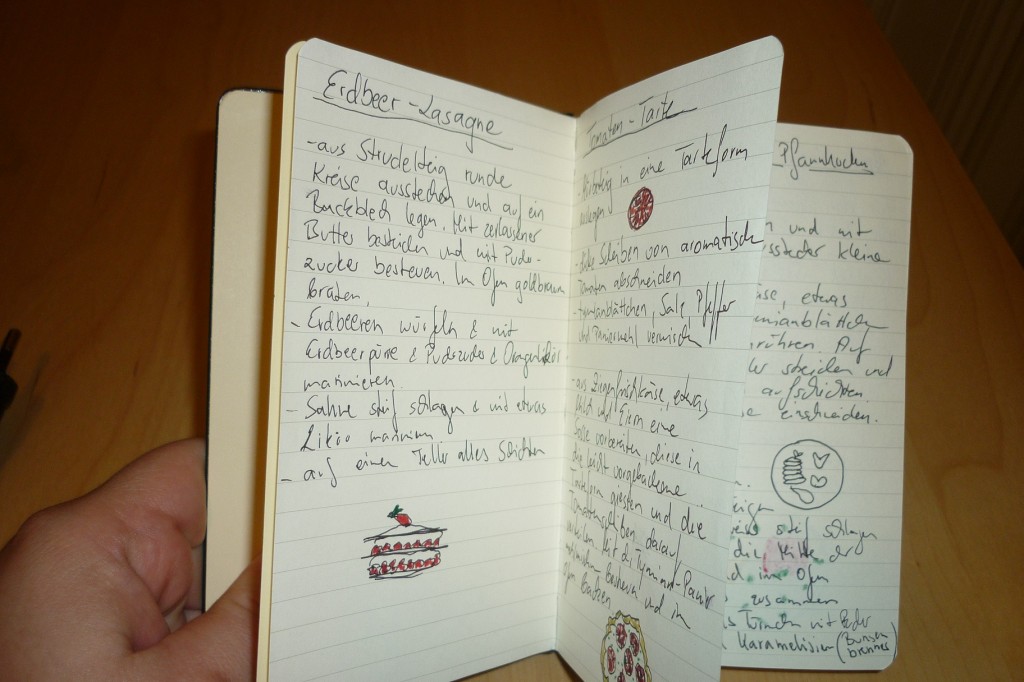 Erdbeer-Lasagne
- aus Strudelteig runde
Kreise ausstechen und auf ein
Backblech legen. Mit zerlassener
Butter bestreichen und mit Puder-
zucker besteuen. Im Ofen goldbraun
braten.
- Erdbeeren würfeln & mit
Erdbeerpüree & Puderzucker & Orangenlikör
marinieren.
- Sahne steif schlagen & mit etwas
Likör
- auf einen Teller alles Schichten
omaten-Tarte
in eine Tarteform
auslegen
- dicke Scheiben von aromatischen
Tomaten abschneiden
- Tymianblättchen, Salz Pfeffer
und Paniermehl vermischen
- aus Ziegenfrischkäse, etwas
Milch und Eiern eine
vorbereiten, diese in
die leicht vorgebackene
Tarteform giesen und die
Tomatenscheiben darauf
verteilen. Mit d. Tymian-Panier
bestreuen und im
Ofen Backen
Pfannkuchen
n und mit
usstecher kleine
äse, etwas
mianblättchen
rühren. Auf
streichen und
aufschichten
einschneiden.
steif schlagen
die Mitte der
d im Ofen
zusammen
mit
karamelisieren (bunsen
brenner)